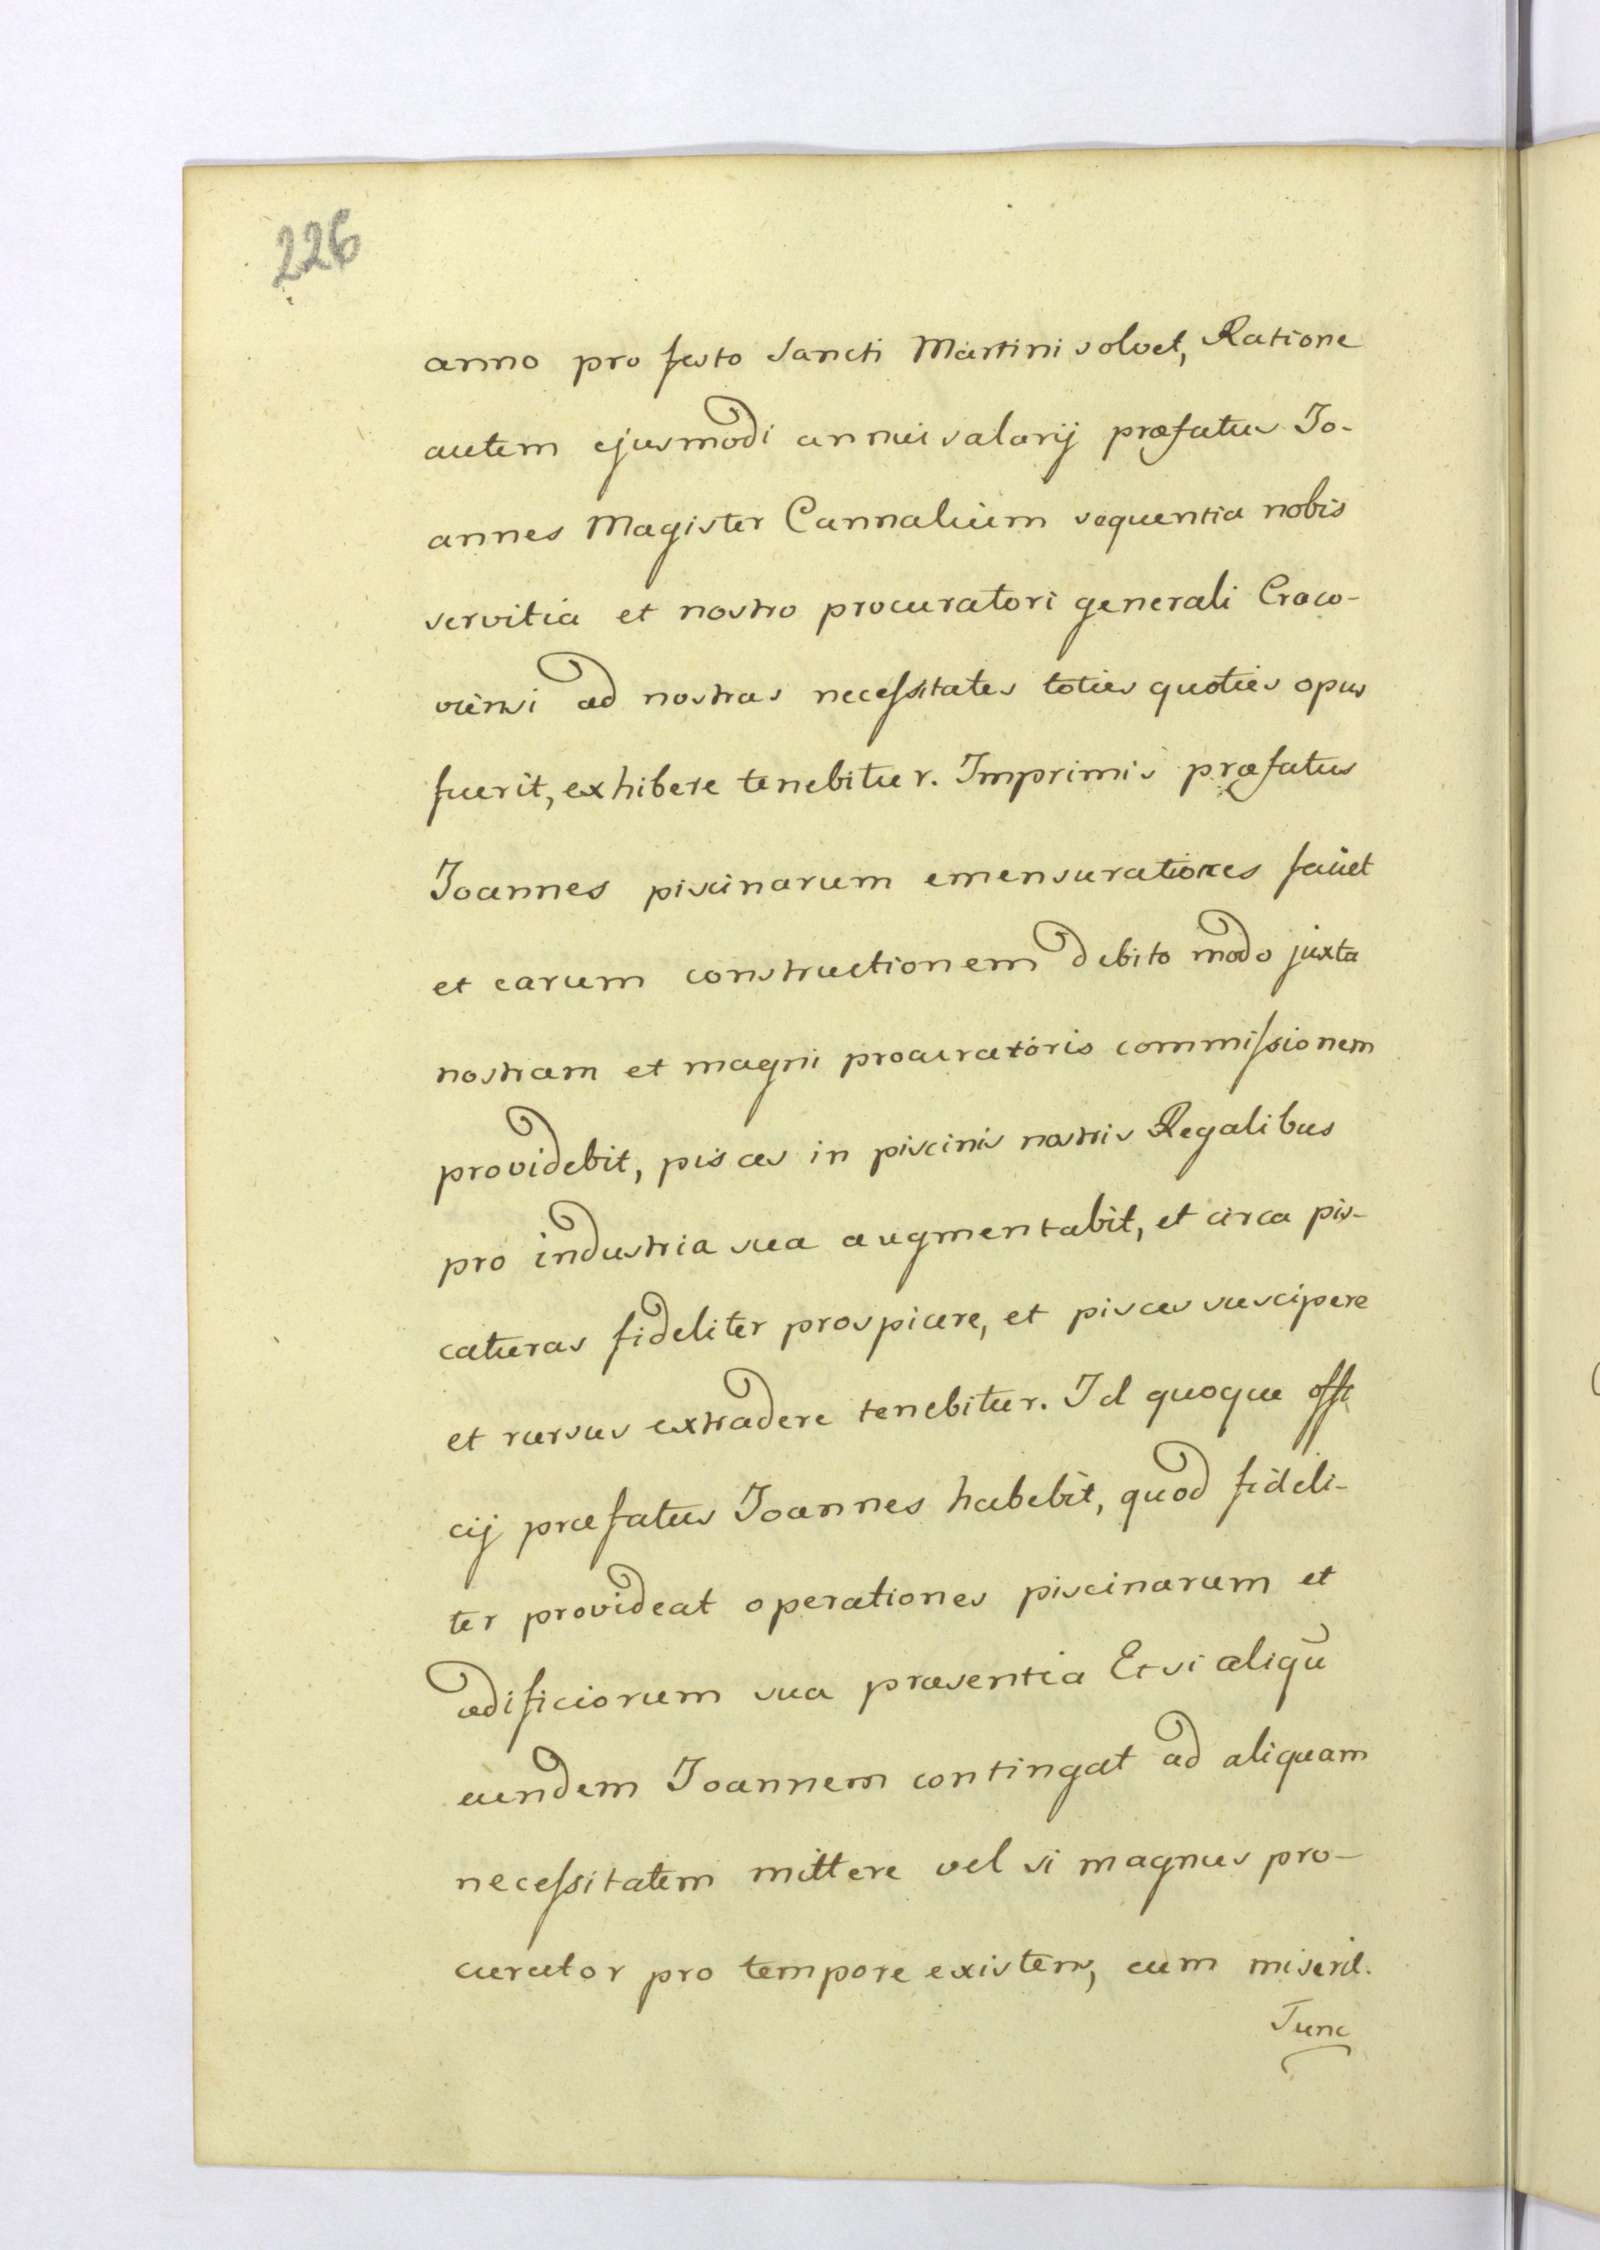 226
anno pro festo Sancti Martini solvet, Ratione
autem ejusmodi annui salarij præfatus Jo-
annes Magister Cannalium sequentia nobis
servitia et nostro procuratori generali Craco-
viensi ad nostras necessitates toties quoties opus
fuerit, exhibere tenebitur. Imprimis præfatus
Joannes piscinarum emensurationes faciet
et earum constructionem debito modo juxta
nostram et magni procuratoris commissionem
providebit, pisces in piscinis nostris Regalibus
pro industria sua augmentabit, et circa pis-
caturas fideliter prospicere, et pisces suscipere
et rursus extradere tenebitur. Id quoque offi
cij præfatus Joannes habebit, quod fideli-
ter provideat operationes piscinarum et
ædificiorum sua præsentia Et si aliqū
eundem Joannem contingat ad aliquam
necessitatem mittere vel si magnus pro-
curator pro tempore existens, eum miserit.
Tunc